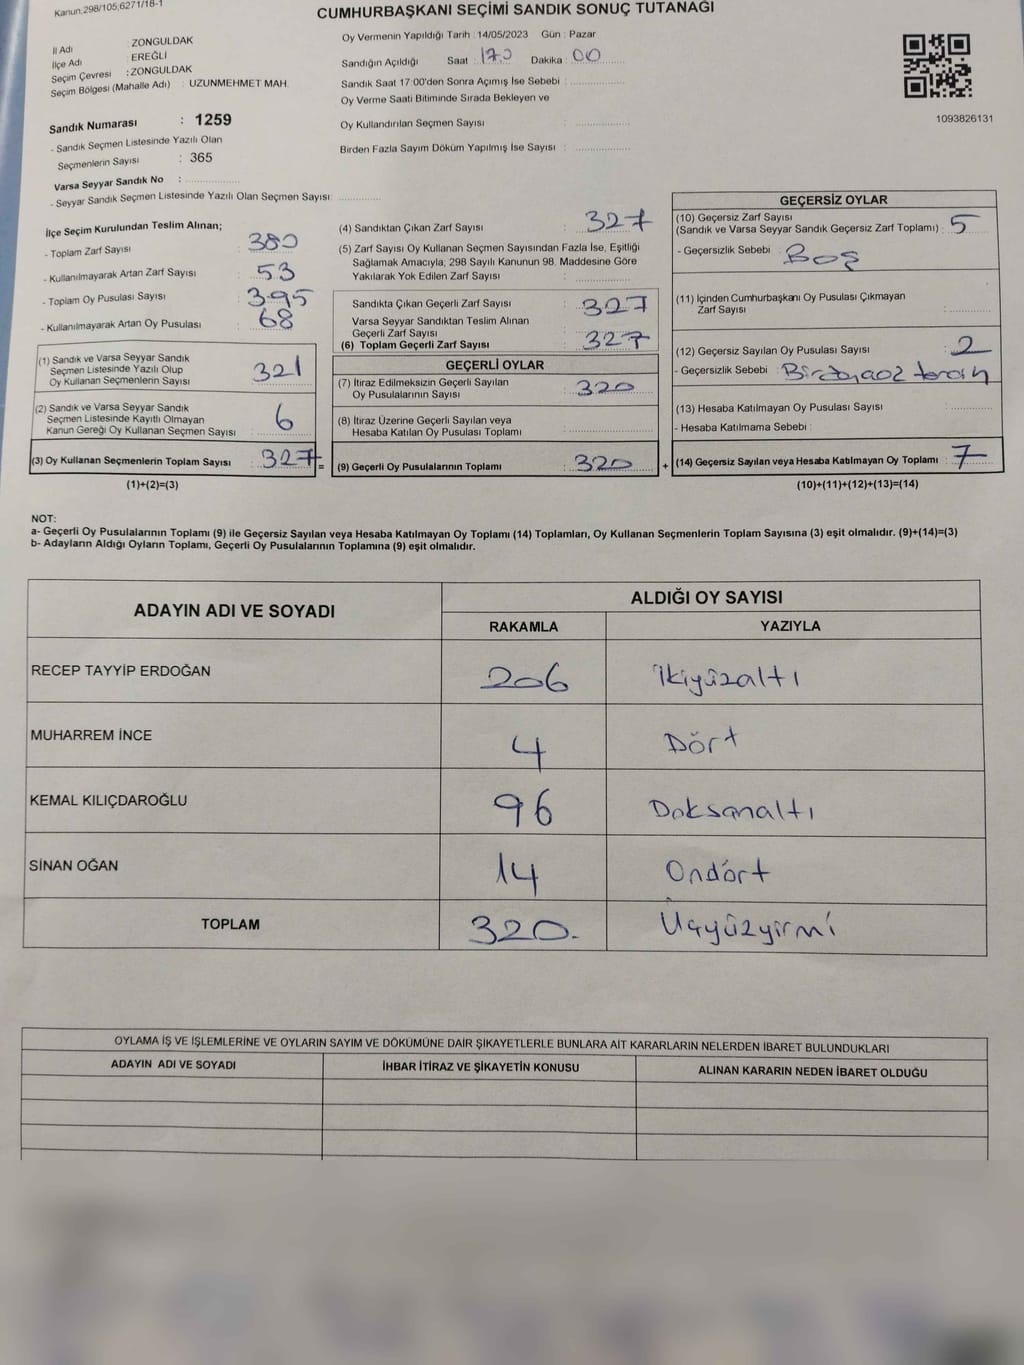 Kanun:298/105;6271/18-1
CUMHURBAŞKANI SEÇİMİ SANDIK SONUÇ TUTANAĞI
İl Adı : ZONGULDAK
İlçe Adı : EREĞLİ
Seçim Çevresi : ZONGULDAK
Seçim Bölgesi (Mahalle Adı) : UZUNMEHMET MAH.
Sandık Numarası : 1259
- Sandık Seçmen Listesinde Yazılı Olan
Seçmenlerin Sayısı : 365
Varsa Seyyar Sandık No :
- Seyyar Sandık Seçmen Listesinde Yazılı Olan Seçmen Sayısı:
Oy Vermenin Yapıldığı Tarih : 14/05/2023 Gün : Pazar
Sandığın Açıldığı Saat : Dakika : 00
Sandık Saat 17:00'den Sonra Açımış İse Sebebi :
Oy Verme Saati Bitiminde Sırada Bekleyen ve
Oy Kullandırılan Seçmen Sayısı :
Birden Fazla Sayım Döküm Yapılmış İse Sayısı :
1093826131
İlçe Seçim Kurulundan Teslim Alınan;
- Toplam Zarf Sayısı : 380
- Kullanılmayarak Artan Zarf Sayısı : 53
- Toplam Oy Pusulası Sayısı : 395
- Kullanılmayarak Artan Oy Pusulası : 68
(1) Sandık ve Varsa Seyyar Sandık
Seçmen Listesinde Yazılı Olup
Oy Kullanan Seçmenlerin Sayısı : 321
(2) Sandık ve Varsa Seyyar Sandık
Seçmen Listesinde Kayıtlı Olmayan
Kanun Gereği Oy Kullanan Seçmen Sayısı : 6
(3) Oy Kullanan Seçmenlerin Toplam Sayısı : 327 =
(1)+(2)=(3)
(4) Sandıktan Çıkan Zarf Sayısı : 327
(5) Zarf Sayısı Oy Kullanan Seçmen Sayısından Fazla İse, Eşitliği
Sağlamak Amacıyla; 298 Sayılı Kanunun 98. Maddesine Göre
Yakılarak Yok Edilen Zarf Sayısı :
Sandıkta Çıkan Geçerli Zarf Sayısı : 327
Varsa Seyyar Sandıktan Teslim Alınan
Geçerli Zarf Sayısı :
(6) Toplam Geçerli Zarf Sayısı : 327
GEÇERLİ OYLAR
(7) İtiraz Edilmeksizin Geçerli Sayılan
Oy Pusulalarının Sayısı : 320
(8) İtiraz Üzerine Geçerli Sayılan veya
Hesaba Katılan Oy Pusulası Toplamı :
(9) Geçerli Oy Pusulalarının Toplamı : 320 +
GEÇERSİZ OYLAR
(10) Geçersiz Zarf Sayısı
(Sandık ve Varsa Seyyar Sandık Geçersiz Zarf Toplamı) : 5
- Geçersizlik Sebebi : Boş
(11) İçinden Cumhurbaşkanı Oy Pusulası Çıkmayan
Zarf Sayısı :
(12) Geçersiz Sayılan Oy Pusulası Sayısı : 2
- Geçersizlik Sebebi :
(13) Hesaba Katılmayan Oy Pusulası Sayısı :
- Hesaba Katılmama Sebebi :
(14) Geçersiz Sayılan veya Hesaba Katılmayan Oy Toplamı : 7
(10)+(11)+(12)+(13)=(14)
NOT:
a- Geçerli Oy Pusulalarının Toplamı (9) ile Geçersiz Sayılan veya Hesaba Katılmayan Oy Toplamı (14) Toplamları, Oy Kullanan Seçmenlerin Toplam Sayısına (3) eşit olmalıdır. (9)+(14)=(3)
b- Adayların Aldığı Oyların Toplamı, Geçerli Oy Pusulalarının Toplamına (9) eşit olmalıdır.
ADAYIN ADI VE SOYADI ALDIĞI OY SAYISI
RAKAMLA YAZIYLA
RECEP TAYYİP ERDOĞAN 206 İkiyüzaltı
MUHARREM İNCE 4 Dört
KEMAL KILIÇDAROĞLU 96 Doksanaltı
SİNAN OĞAN 14 Ondört
TOPLAM 320. Üçyüzyirmi
OYLAMA İŞ VE İŞLEMLERİNE VE OYLARIN SAYIM VE DÖKÜMÜNE DAİR ŞİKAYETLERLE BUNLARA AİT KARARLARIN NELERDEN İBARET BULUNDUKLARI
ADAYIN ADI VE SOYADI İHBAR İTİRAZ VE ŞİKAYETİN KONUSU ALINAN KARARIN NEDEN İBARET OLDUĞU